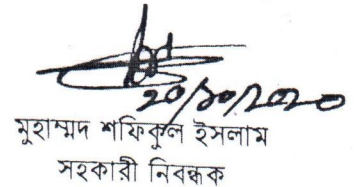 20/10/2020
মুহাম্মদ শফিকুল ইসলাম
সহকারী নিবন্ধক